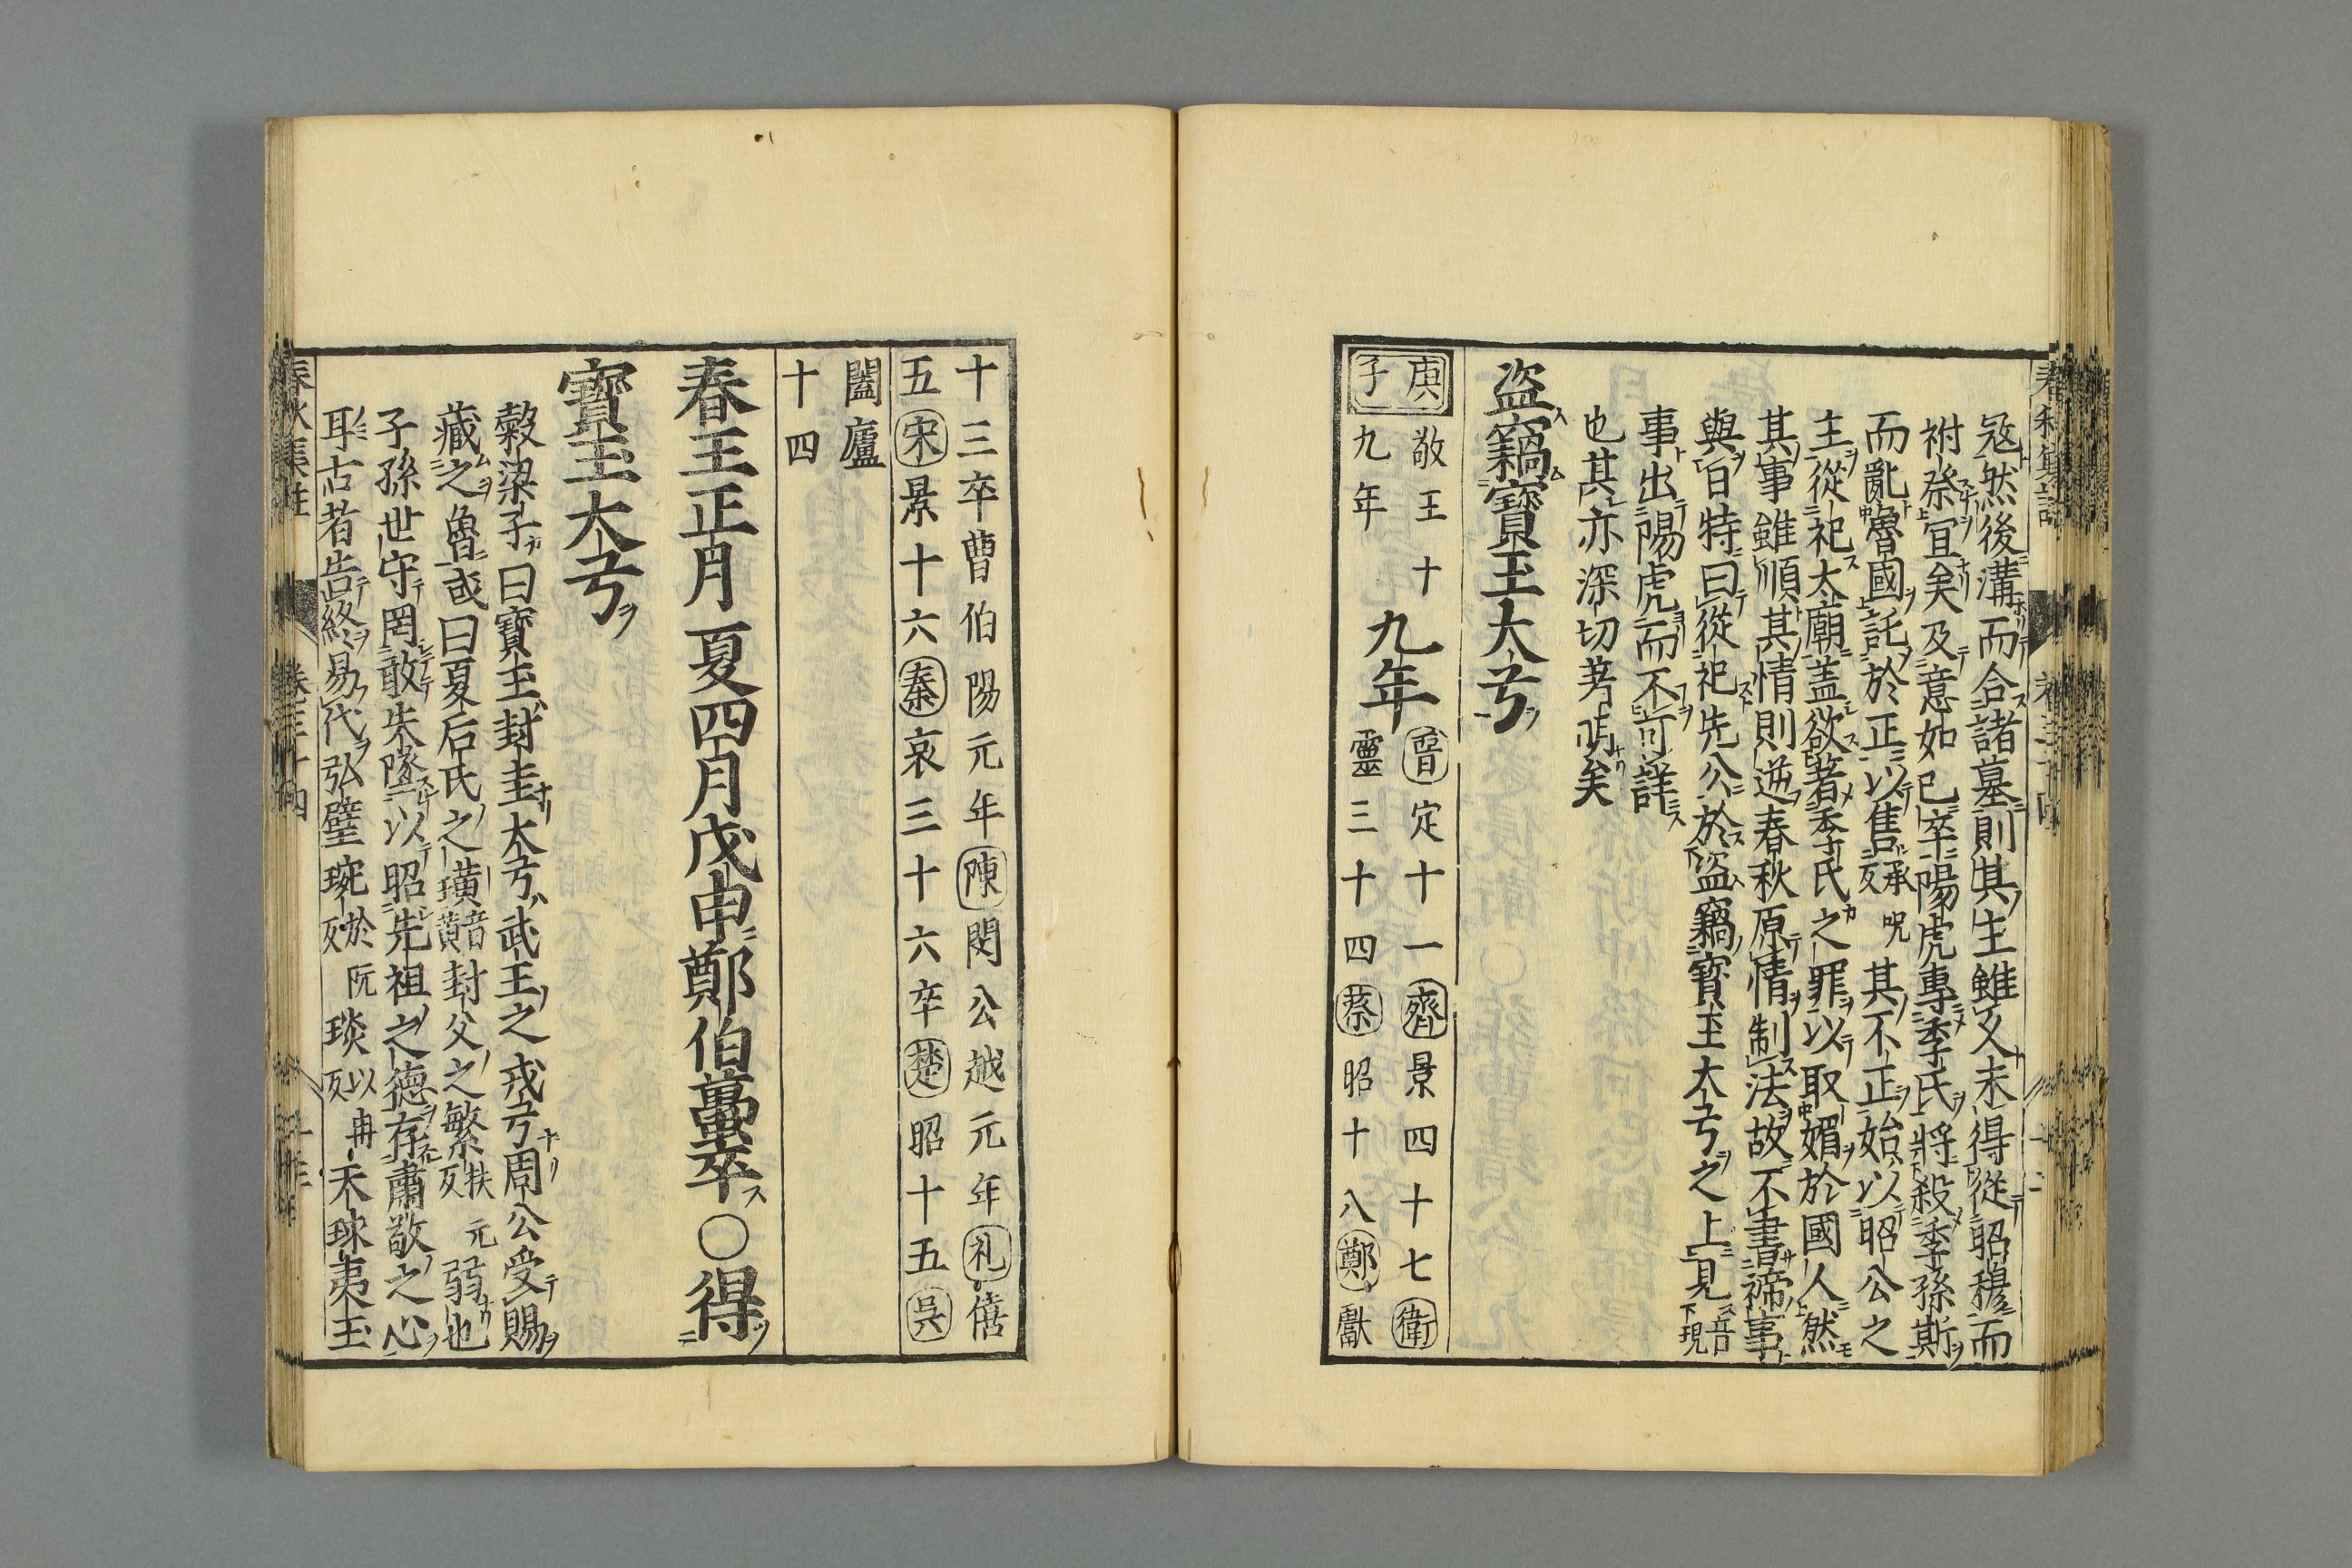 冦然後溝而合諸墓則其主雖久未得從昭穆而
祔祭宜矣及意如已卒陽虎專季氏將殺季孫斯
而亂魯國託於正以售承呪反其不正始以昭公之
主從祀太廟盖欲著季氏之罪以取媚於國人然
其事雖順其情則逆春秋原情制法故不書禘事
與日特曰從祀先公於盗竊寳玉大弓之上見音現
事出陽虎而不可詳
也其亦深切著明矣
盗竊寳玉大弓
庚子
敬王十九年
九年
晋定十一齊景四十七衛靈三十四蔡昭十八鄭獻
十三卒曹伯陽元年陳閔公越元年礼僖
五宋景十六秦哀三十六卒楚昭十五吳
闔廬
十四
春王正月夏四月戊申鄭伯蠆卒〇得
寳玉大弓
穀梁子曰寳玉封圭大弓武王之戎弓周公受賜
藏之魯或曰夏后氏之璜音黄封父之繁扶元反弱也
子孫世守罔敢失墜以昭先祖之德存肅敬之心
耳古者告終易代弘璧琬於阮反琰以冉反天球夷玉
春秋集註 卷三十四